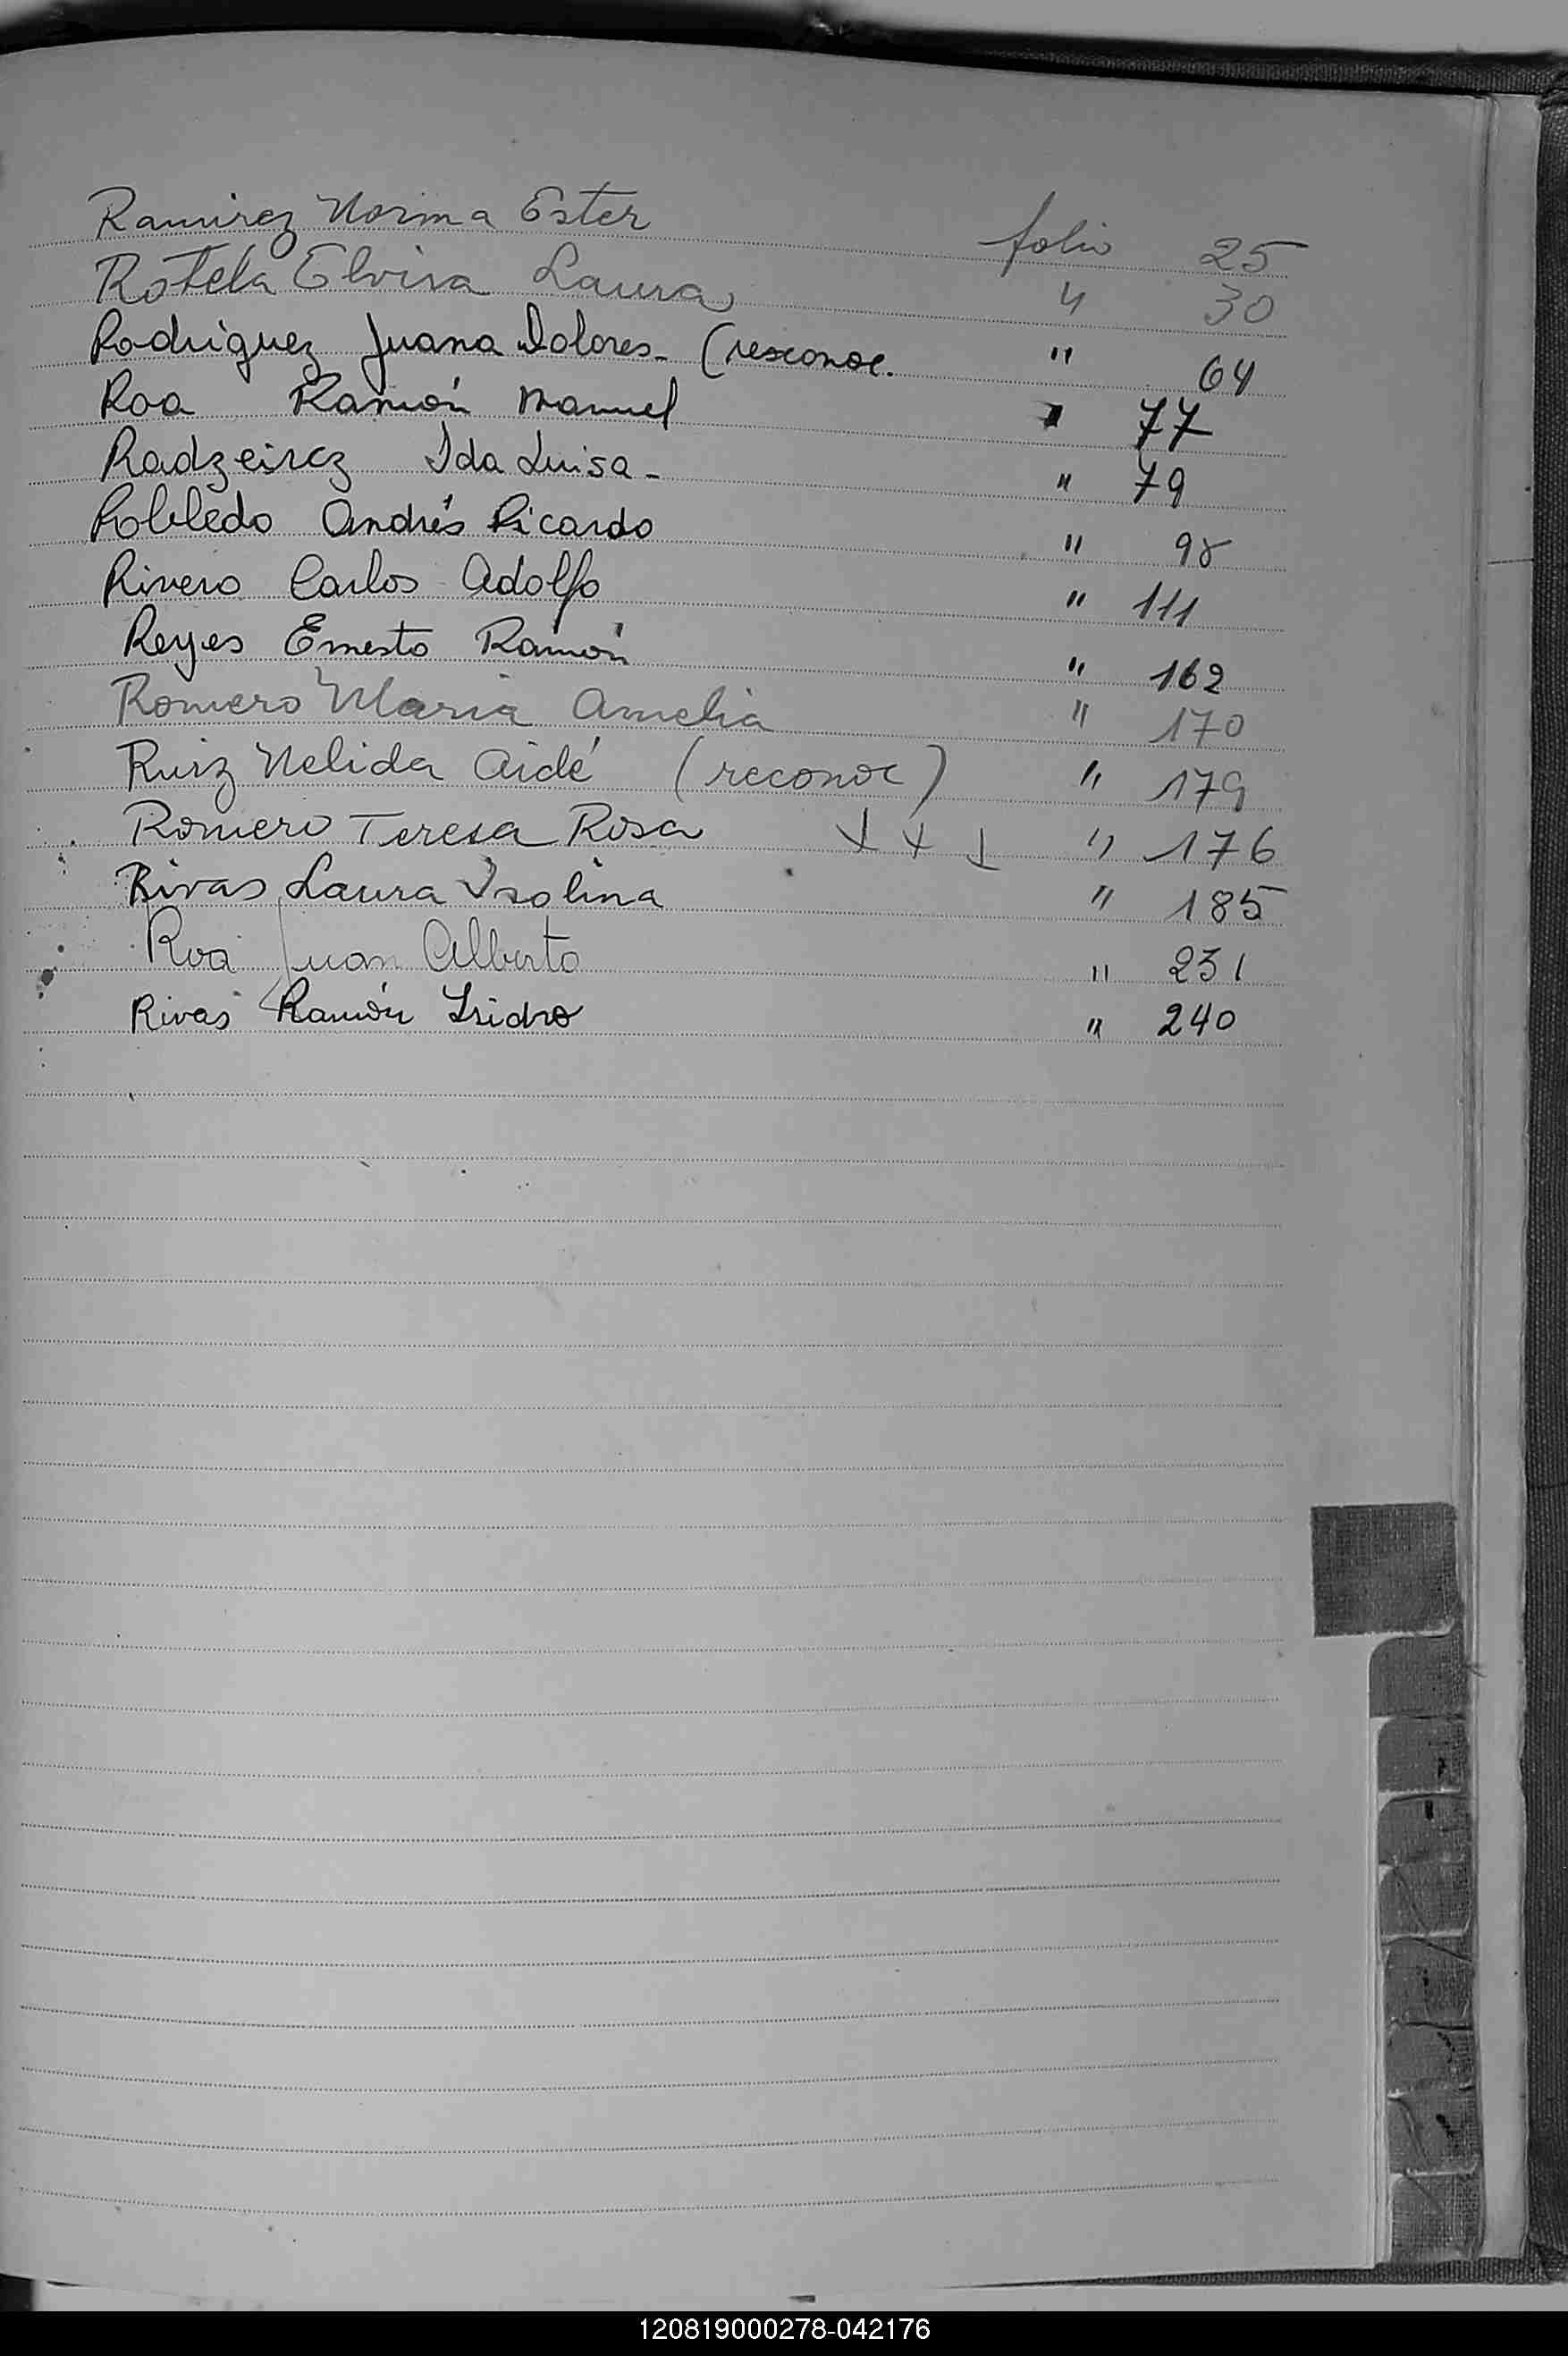 Ramirez Norma Ester folio 25
Rotela Elvira Laura " 30
Rodriguez Juana Dolores - (reconoc. " 64
Roa Ramón Manuel " 77
Radzeircz Ida Luisa - " 79
Robledo Andrés Ricardo " 98
Rivero Carlos Adolfo " 111
Reyes Ernesto Ramón " 162
Romero Maria Amelia " 170
Ruiz Nelida Aidé (reconoc) " 179
Romero Teresa Rosa " 176
Rivas Laura Isolina " 185
Roa Juan Alberto " 231
Rivas Ramón Isidro " 240
120819000278-042176